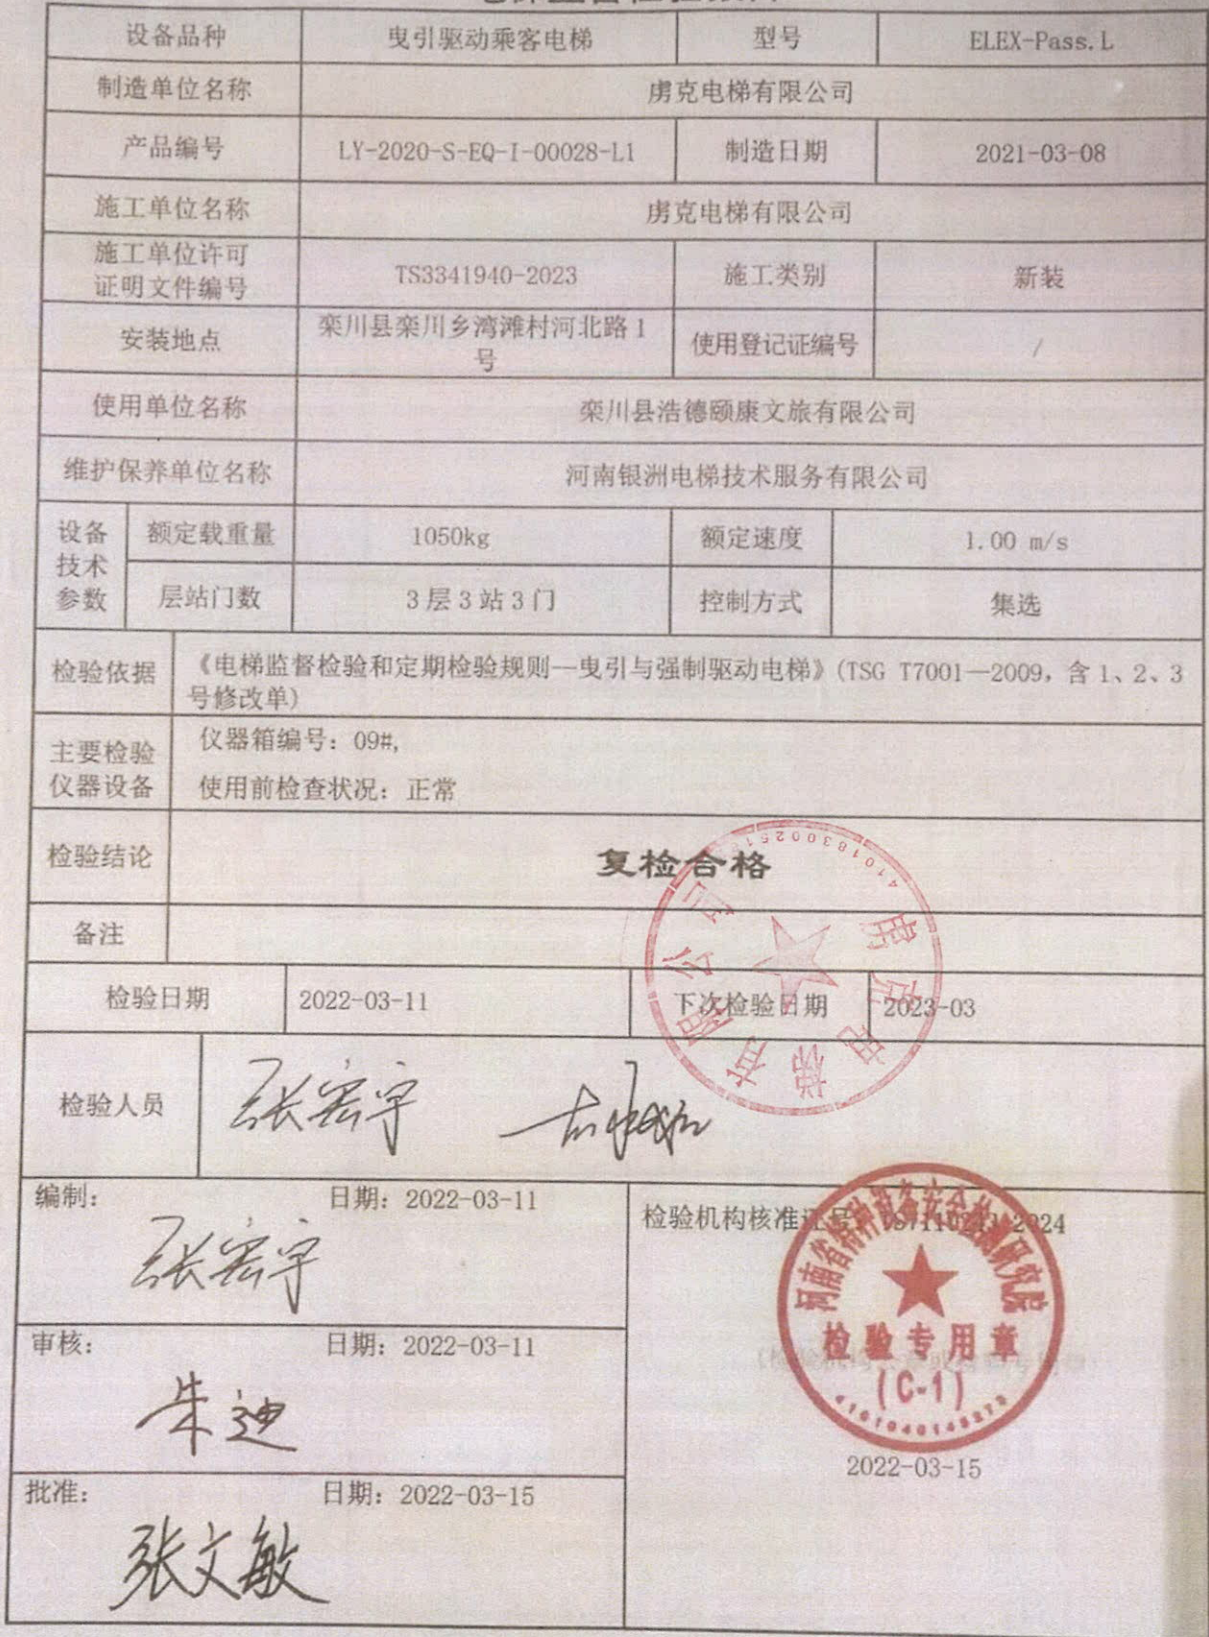 设备品种 曳引驱动乘客电梯 型号 ELEX-Pass.L
制造单位名称 虏克电梯有限公司
产品编号 LY-2020-S-EQ-I-00028-L1 制造日期 2021-03-08
施工单位名称 虏克电梯有限公司
施工单位许可
证明文件编号 TS3341940-2023 施工类别 新装
安装地点 栾川县栾川乡湾滩村河北路1
号 使用登记证编号 /
使用单位名称 栾川县浩德颐康文旅有限公司
维护保养单位名称 河南银洲电梯技术服务有限公司
设备
技术
参数
额定载重量 1050kg 额定速度 1.00 m/s
层站门数 3层3站3门 控制方式 集选
检验依据 《电梯监督检验和定期检验规则—曳引与强制驱动电梯》(TSG T7001—2009，含1、2、3
号修改单)
主要检验
仪器设备
仪器箱编号：09#,
使用前检查状况：正常
检验结论 复检合格
备注
虏克电梯有限公司
检验日期 2022-03-11 下次检验日期 2023-03
检验人员 张宏宇
编制： 日期：2022-03-11
张宏宇
检验机构核准证号
2024
河南省特种设备安全检测研究院
检验专用章
(C-1)
审核： 日期：2022-03-11
朱迪
2022-03-15
批准： 日期：2022-03-15
张文敏